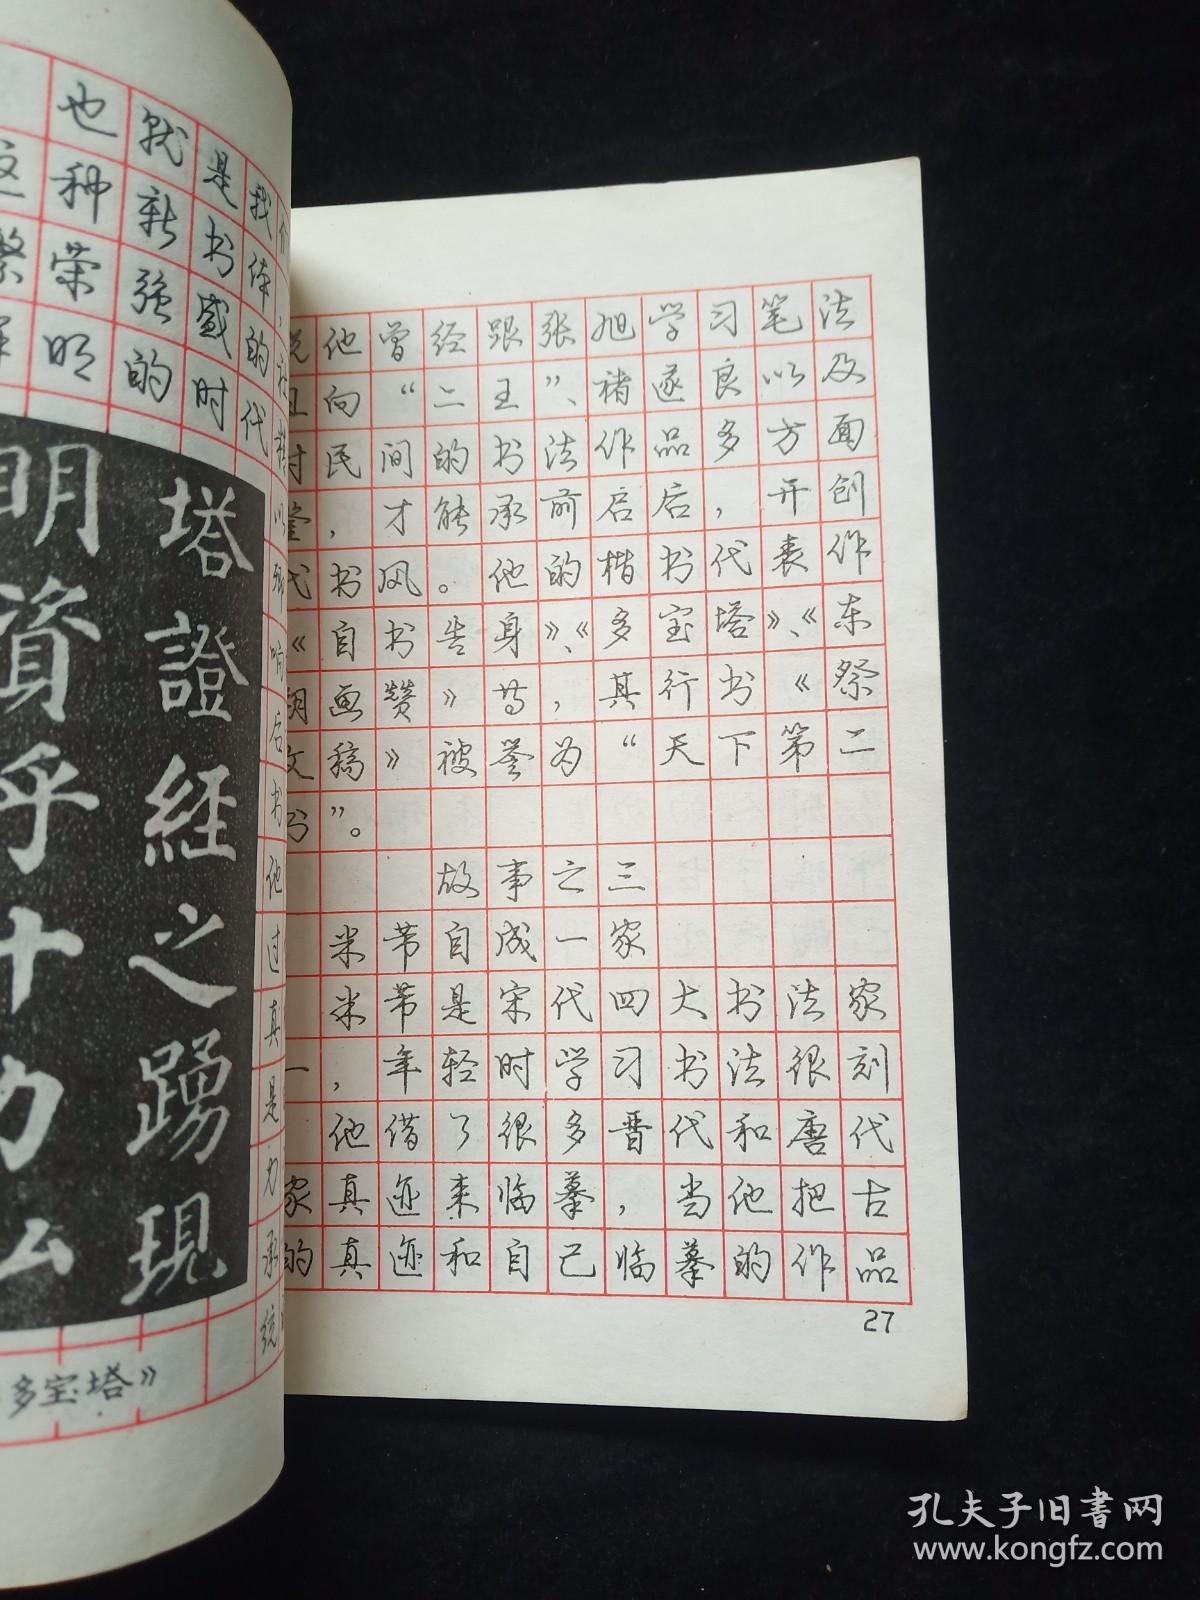 也就是找
这种新书体
繁荣强盛的代
明的时
塔證經之踴現
明資乎十力
多宝塔》
说他曾经跟张旭学习笔法
且向“二王”、褚遂良以及
民间的书法作品多方面
，才能承前启后，开创
代书风。他的楷书代表作
《自书告身》、《多宝塔》、《东
朔画赞》等，其行书《祭
文稿》被誉为“天下第二
书”。
故事之三
米芾自成一家
米芾是宋代四大书法家
一，年轻时学习书法很刻
他借了很多晋代和唐代
家真迹来临摹，当他把古
的真迹和自己临摹的作品
27
孔夫子旧書网
www.kongfz.com